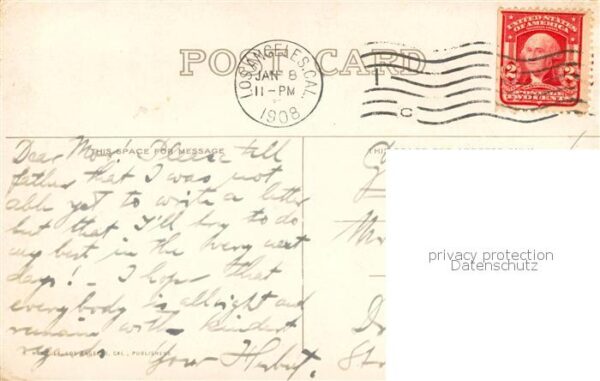 POST CARD
LOS ANGELES, CAL.
JAN 8
11-PM
1908
UNITED STATES
OF AMERICA
2 2
TWO CENTS
THIS SPACE FOR MESSAGE
Dear Please tell
father, that I was not
able yet to write a letter
but that I'll try to do
my best in the very next
days! - I hope that
everybody is allright and
remain with kindest
regards Your Herbert.
LOS ANGELES, CAL., PUBLISHERS
privacy protection
Datenschutz